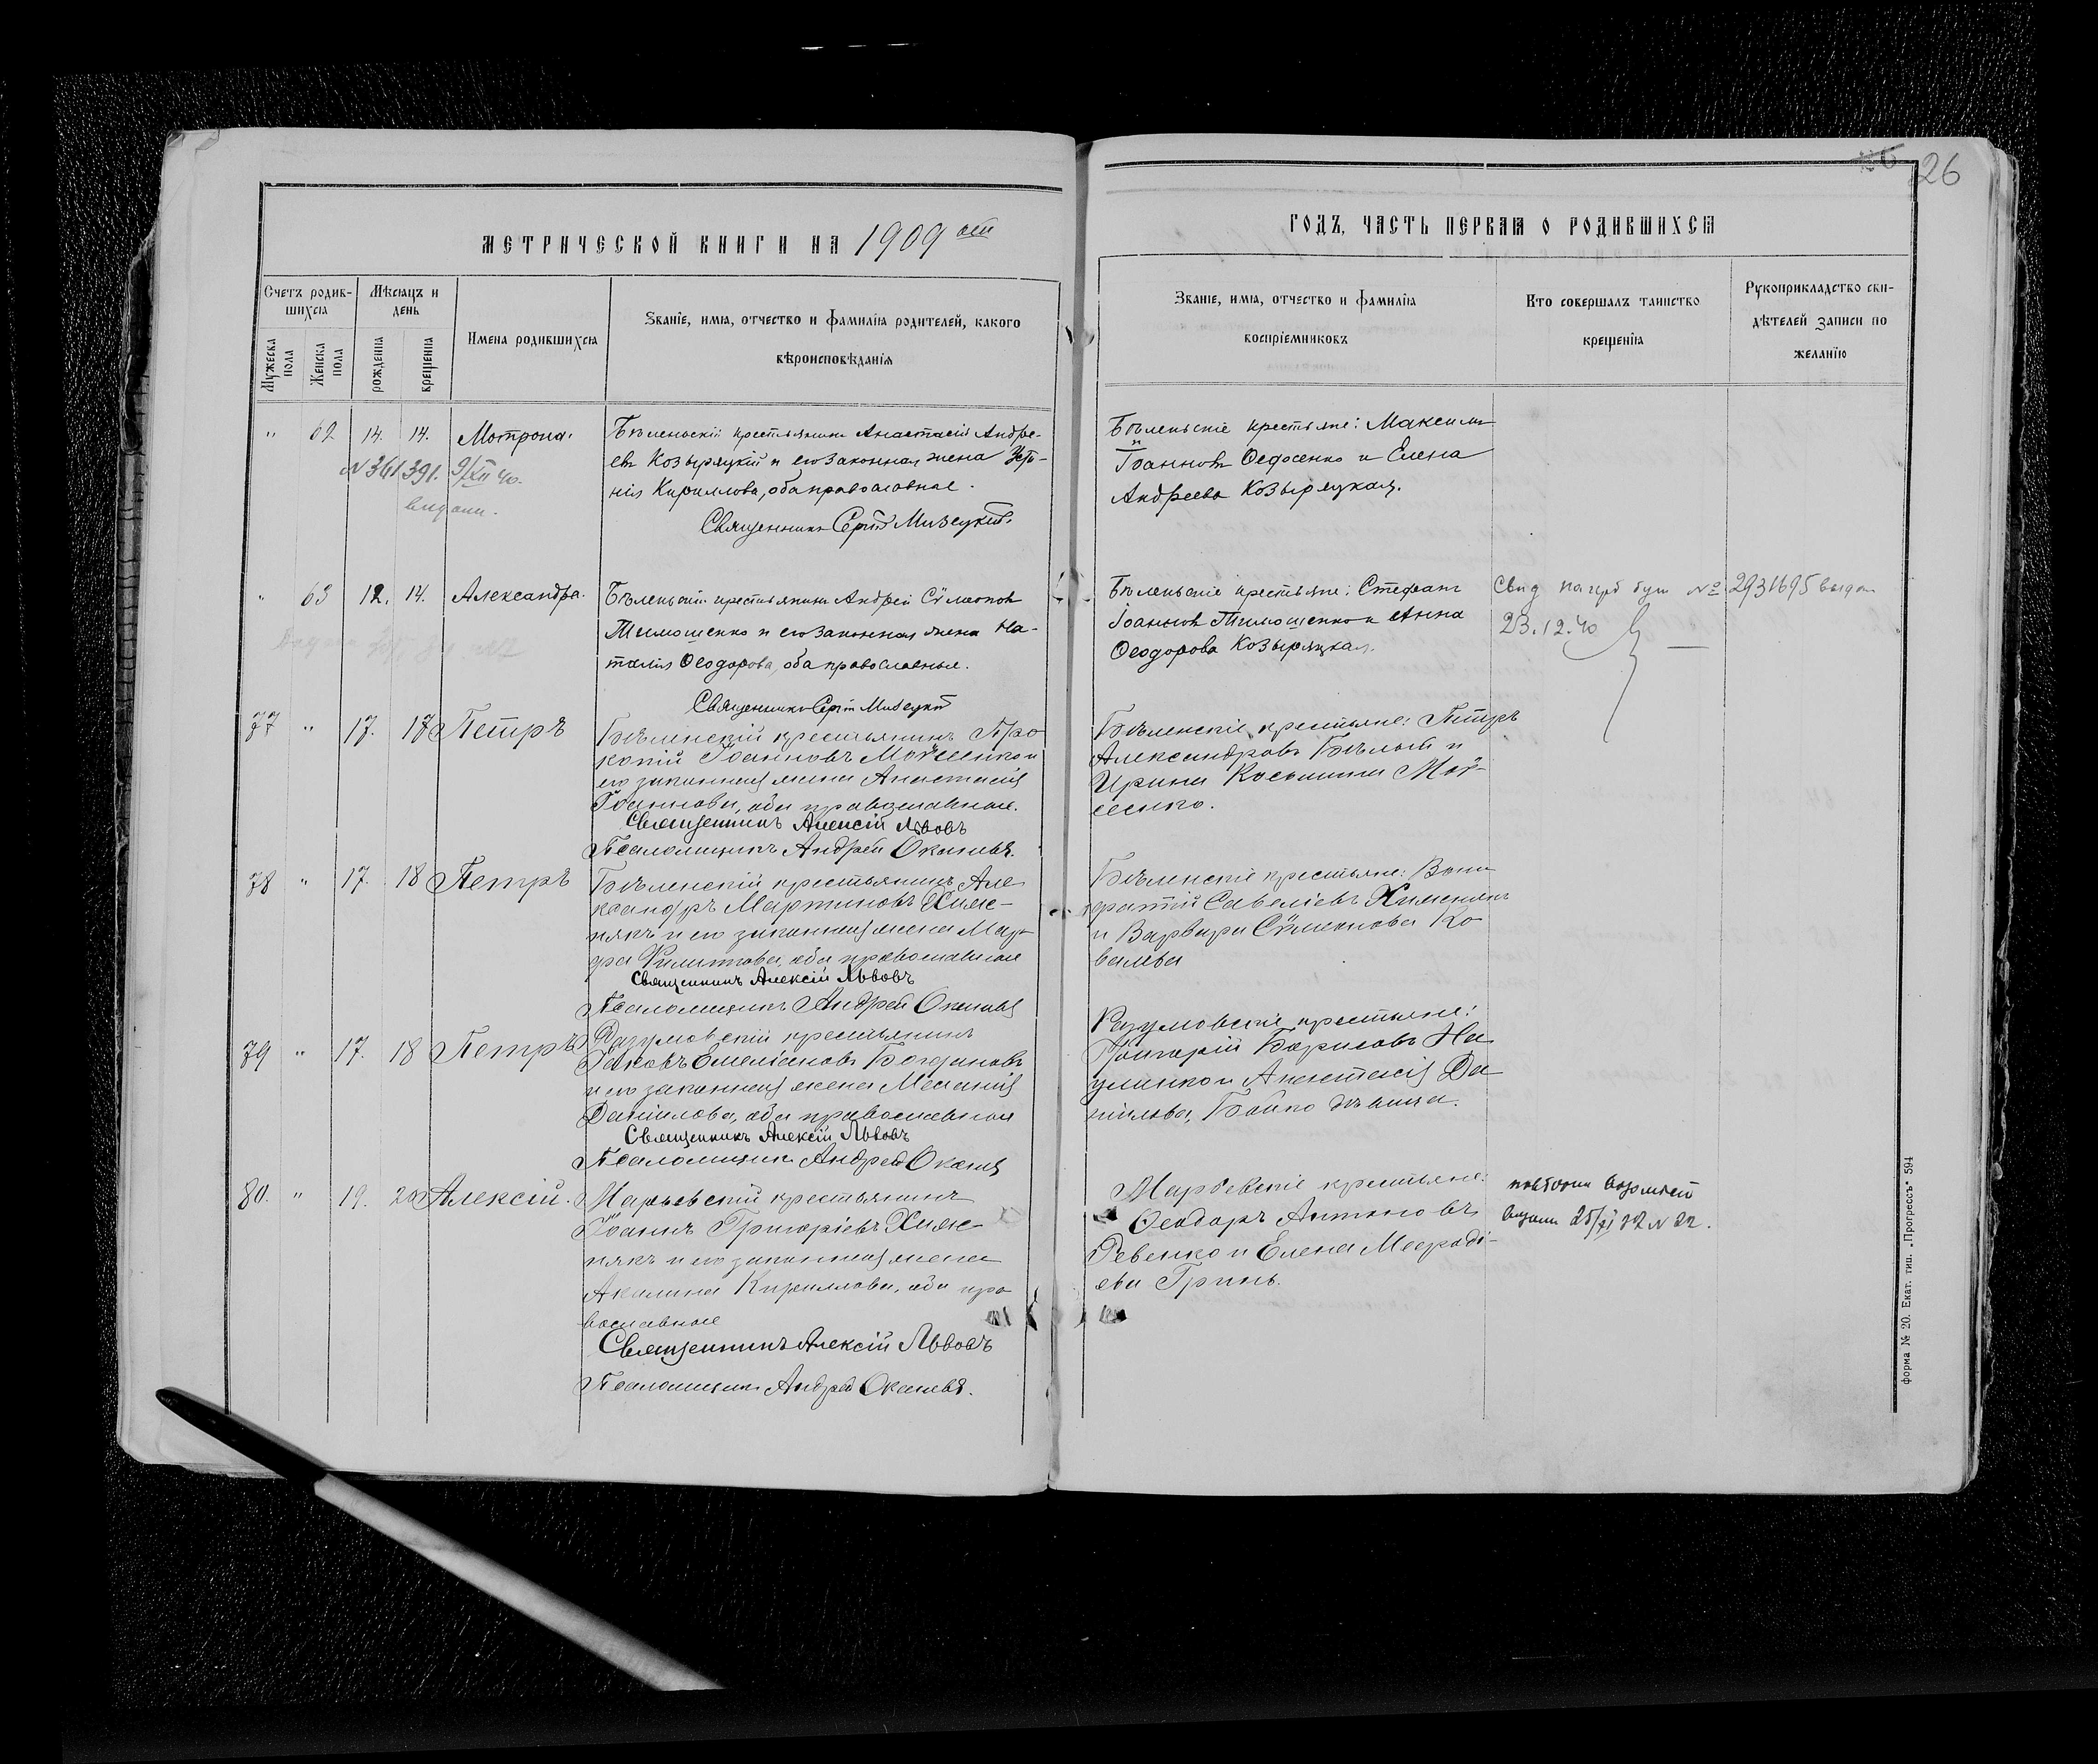 26
МЕТРИЧЕСКОЙ КНИГИ НА 1909 ый
ГОДЪ, ЧАСТЬ ПЕРВАЯ О РОДИВШИХСЯ
Счетъ родив-
шихся
Мужеска пола
Женска пола
Мѣсяцъ и
день
рожденія
крещенія
Имена родившихся
Званіе, имя, отчество и фамилія родителей, какого
вѣроисповѣданія
Званіе, имя, отчество и фамилія
воспріемниковъ
Кто совершалъ таинство
крещенія
Рукоприкладство сви-
дѣтелей записи по
желанію
" 62 14. 14. Мотрона.
N 361391. 9/XII 40.
Бѣленьскій крестьянинъ Анастасій Андре-
евъ Козыряцкій и его законная жена
Кириллова, оба православные.
Священникъ Сергій Мизецкій.
Бѣленьскіе крестьяне: Максимъ
Іоанновъ Ѳеѳосенко и Елена
Андреева Козыряцкая.
" 63 12. 14. Александра.
Бѣленьскій крестьянинъ Андрей Сѵмеонов
Тимошенко и его законная жена На-
талія Ѳеодорова, оба православные.
Священникъ Сергій Мизецкій
Бѣленьскіе крестьяне: Стефанъ
Іоанновъ Тимошенко и Анна
Ѳеодорова Козыряцкая.
Свид № 2931695 выдан
23.12.40
77 " 17. 17 Петръ
Бѣленскій крестьянинъ Про
копій Іоанновъ Моѵсеенко и
его законная жена Анастасія
Іоаннова, оба православные.
Священникъ Алексій Львовъ
Псаломщикъ Андрей
Бѣленскіе крестьяне: Петръ
Александровъ Бѣлый и
Ирина Косьмина Моѵ-
сеенко.
78 " 17. 18 Петръ
Бѣленскій крестьянинъ Але
ксандръ Мартиновъ Химе-
някъ и его законная жена Мар
ѳа Филиппова, оба православные
Священникъ Алексій Львовъ
Псаломщикъ Андрей
Бѣленскіе крестьяне: Вони
фатій Савеліевъ Хименякъ
и Варвара Сѵмеонова Ко
валева
79 " 17. 18 Петръ
Разумовскій крестьянинъ
Іаковъ Емеліановъ Богдановъ
и его законная жена Меланія
Даніилова, оба православные
Священникъ Алексій Львовъ
Псаломщикъ Андрей
Разумовскіе крестьяне:
Григорій Борисовъ На
уменко и Анастасія Да
ніилова, Бойко дѣвица.
80. " 19. 20 Алексій.
Марьевскій крестьянинъ
Іоаннъ Григоріевъ Химе-
някъ и его законная жена
Акилина Кириллова, оба пра
вославные
Священникъ Алексій Львовъ
Псаломщикъ Андрей
Марьевскіе крестьяне:
Ѳеодоръ Антоновъ
Ревенко и Елена Меѳоді-
ева Гринь.
форма № 20. Екат. тип. „Прогрессъ" 594